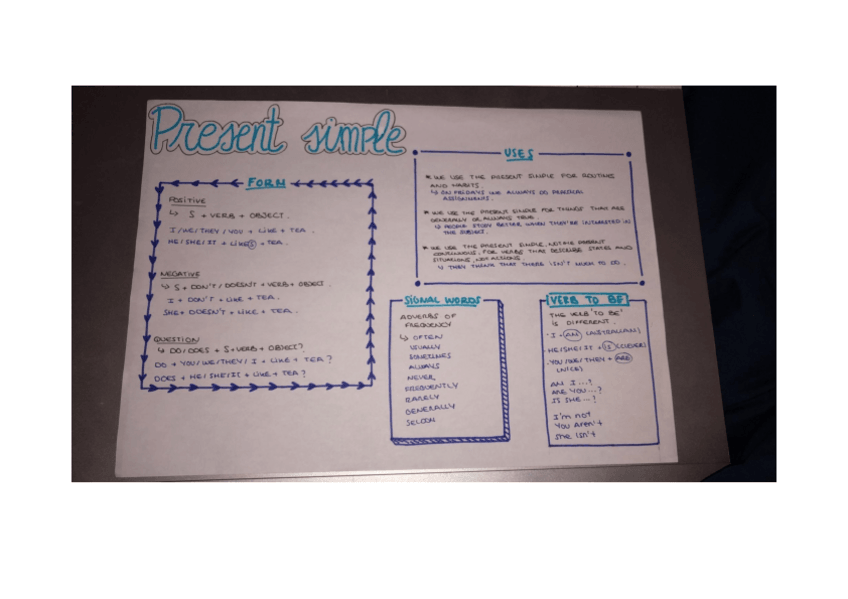 Present simple
FORM
POSITIVE
↳ S + VERB + OBJECT.
I/WE/THEY/YOU + LIKE + TEA.
HE/SHE/IT + LIKES + TEA.
NEGATIVE
↳ S + DON'T/DOESN'T + VERB + OBJECT.
I + DON'T + LIKE + TEA.
SHE + DOESN'T + LIKE + TEA.
QUESTION
↳ DO/DOES + S + VERB + OBJECT?
DO + YOU/WE/THEY/I + LIKE + TEA?
DOES + HE/SHE/IT + LIKE + TEA?
USES
* WE USE THE PRESENT SIMPLE FOR ROUTINES
AND HABITS.
↳ ON FRIDAYS WE ALWAYS DO PERSONAL
ASSIGNMENTS.
* WE USE THE PRESENT SIMPLE FOR THINGS THAT ARE
GENERALLY OR ALWAYS TRUE.
↳ PEOPLE STUDY BETTER WHEN THEY'RE INTERESTED IN
THE SUBJECT.
* WE USE THE PRESENT SIMPLE, NOT THE PRESENT
CONTINUOUS, FOR VERBS THAT DESCRIBE STATES AND
SITUATIONS, NOT ACTIONS.
↳ THEY THINK THAT THERE ISN'T MUCH TO DO.
SIGNAL WORDS
ADVERBS OF
FREQUENCY
↳ OFTEN
USUALLY
SOMETIMES
ALWAYS
NEVER
FREQUENTLY
RARELY
GENERALLY
SELDON
VERB TO BE
THE VERB 'TO BE'
IS DIFFERENT.
· I + AM (AUSTRALIAN)
· HE/SHE/IT + IS (CLEVER)
· YOU/WE/THEY + ARE
(NICE)
AM I...?
ARE YOU...?
IS SHE...?
I'm not
You Aren't
She Isn't